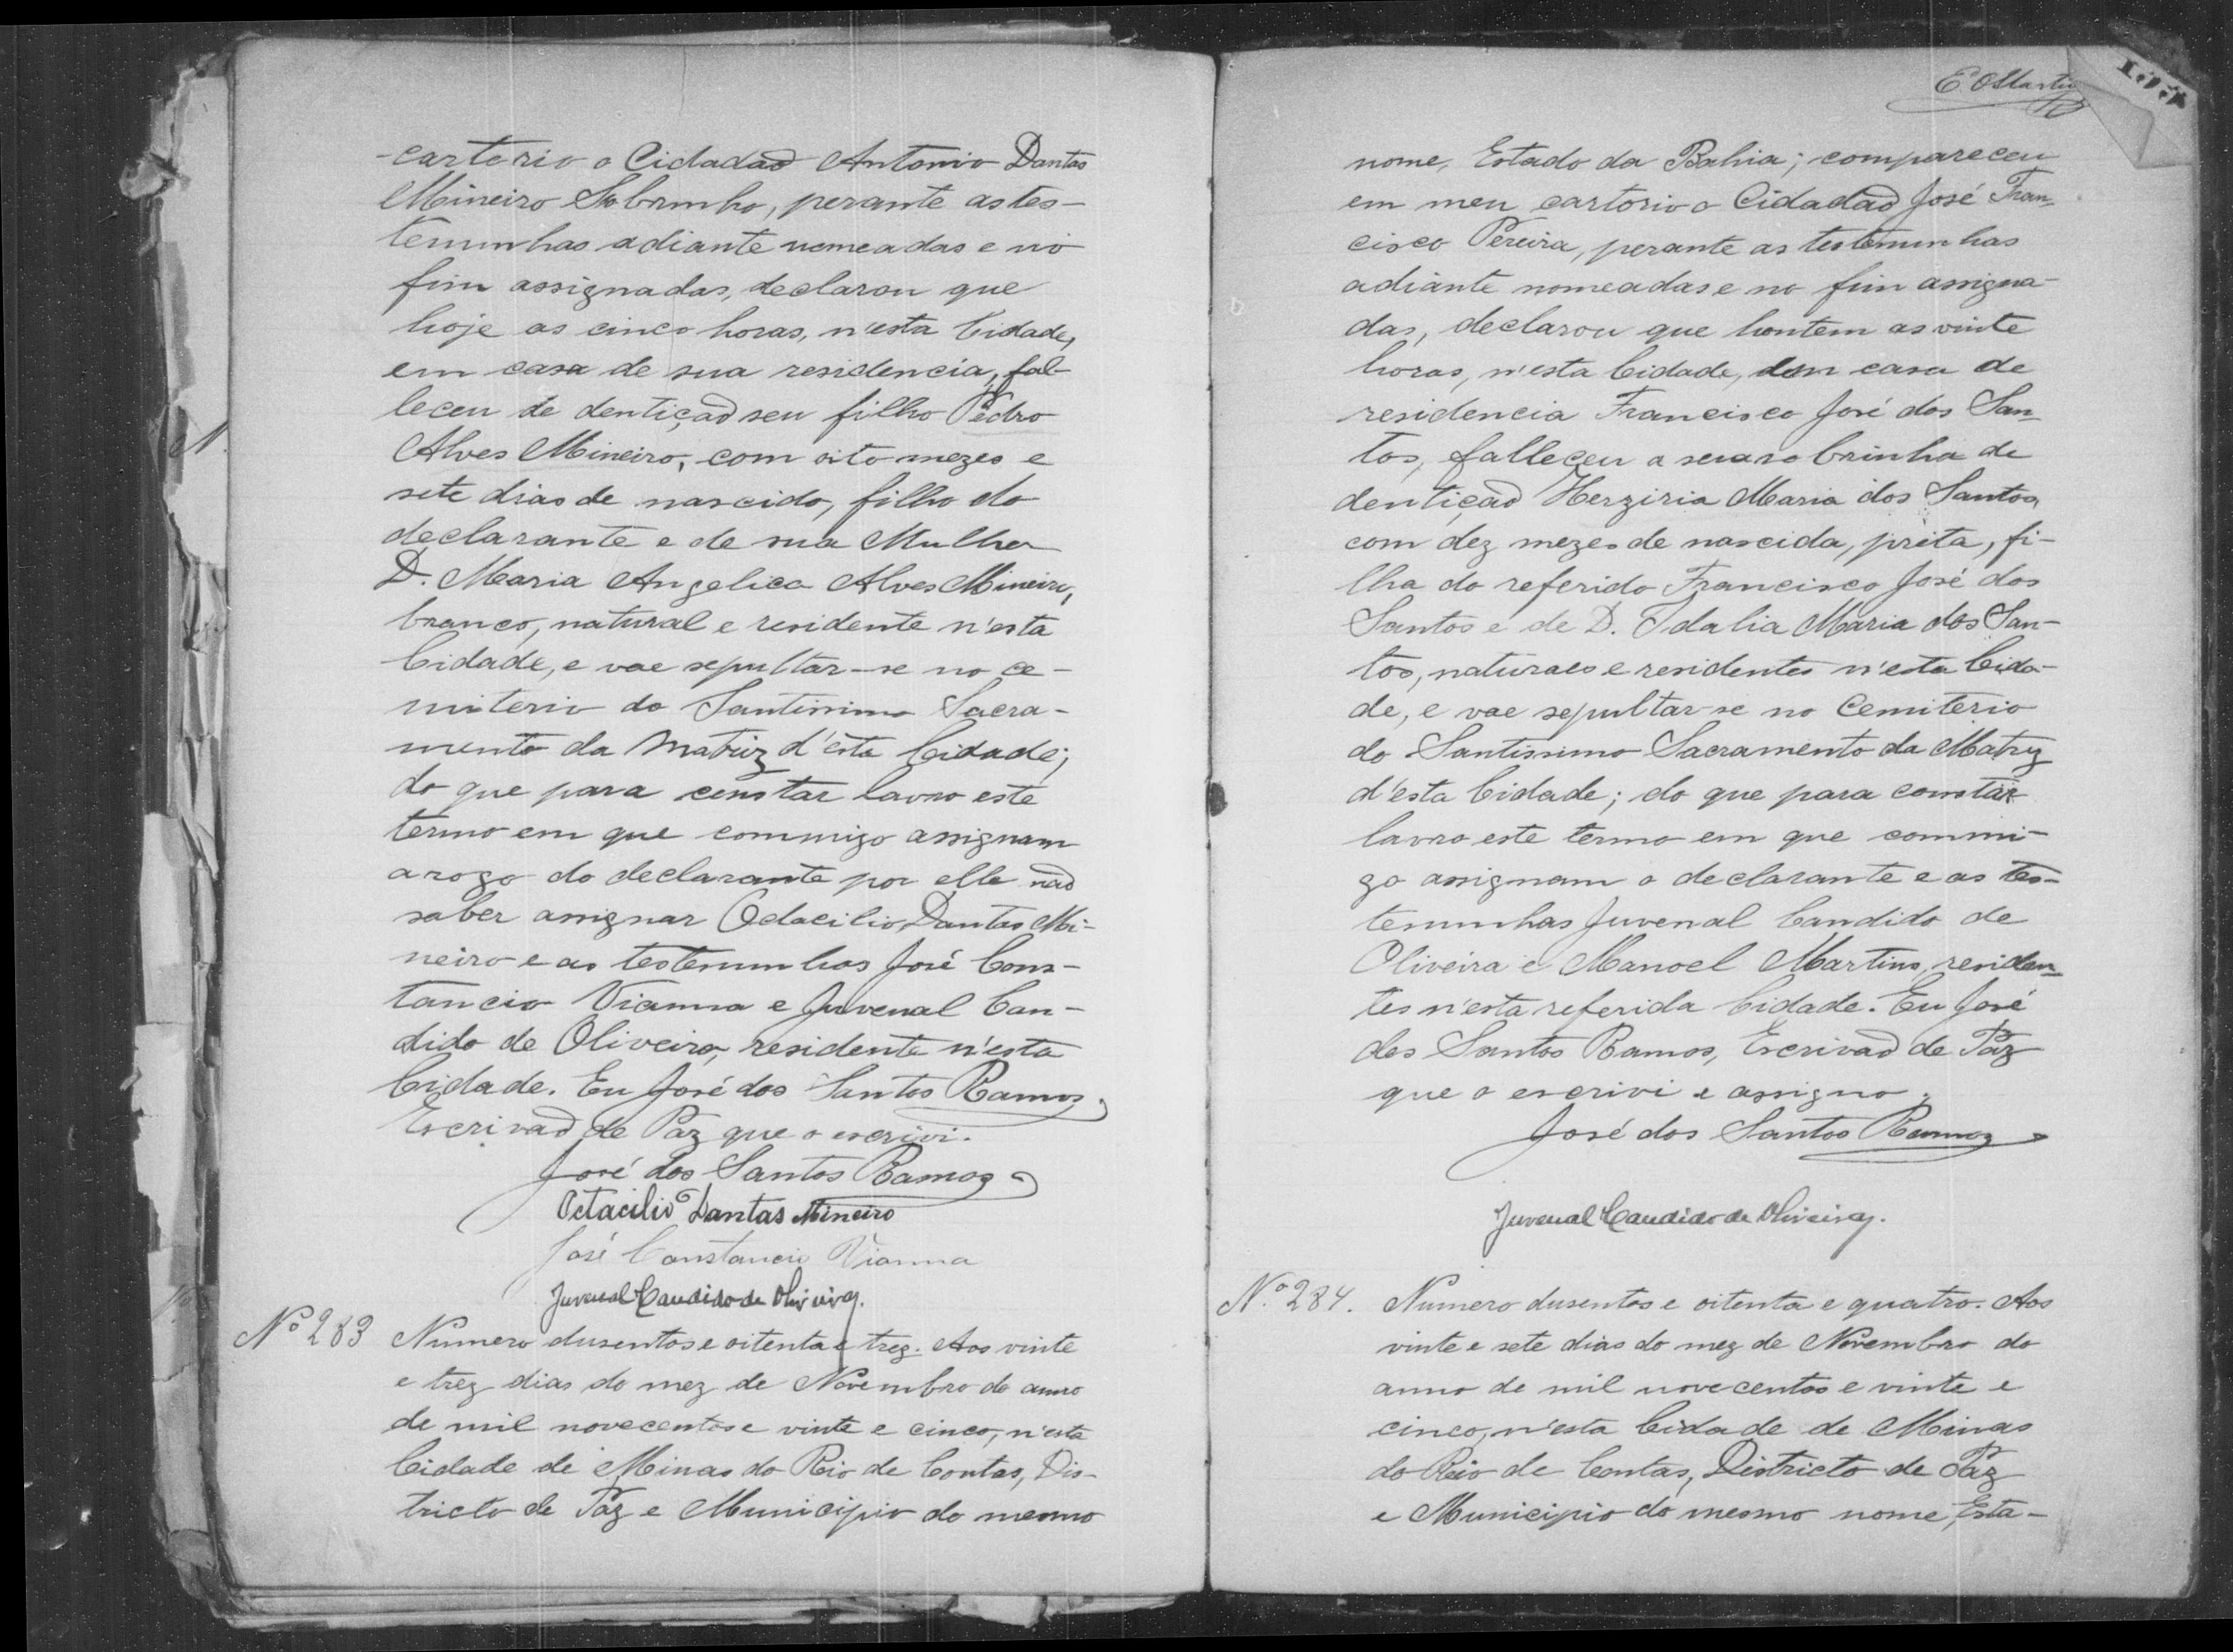 cartorio o Cidadaõ Antonio Dantas
Mineiro Sobrinho, perante as tes-
temunhas adiante nomeadas e no
fim assignadas, declarou que
hoje as cinco horas, n'esta Cidade,
em casa de sua residencia, fal-
leceu de dentiçaõ seu filho Pedro
Alves Mineiro, com oito mezes e
sete dias de nascido, filho do
declarante e de sua Mulher
D. Maria Angelica Alves Mineiro,
branco, natural e residente n'esta
Cidade, e vae sepultar-se no ce-
miterio do Santissimo Sacra-
mento da Matriz d'esta Cidade;
do que para constar lavro este
termo em que commigo assignam
a rogo do declarante por elle naõ
saber assignar Odacilio Dantas Mi-
neiro e as testemunhas José Cons-
tancio Vianna e Juvenal Can-
dido de Oliveira, residente n'esta
Cidade. Eu José dos Santos Ramos,
Escrivaõ de Paz que o escrivi.
José dos Santos Ramos
Octacilio Dantas Mineiro
José Constancio Vianna
Juvenal Candido de Oliveira.
Nº 283 Numero dusentos e oitenta e trez. Aos vinte
e trez dias do mez de Novembro do anno
de mil novecentos e vinte e cinco, n'esta
Cidade de Minas do Rio de Contas, Dis-
tricto de Paz e Municipio do mesmo
nome, Estado da Bahia; compareceu
em meu cartorio o Cidadaõ José Fran-
cisco Pereira, perante as testemunhas
adiante nomeadas e no fim assigna-
das, declarou que hontem as vinte
horas, n'esta Cidade, em casa de
residencia Francisco José dos San-
tos, falleceu a sua sobrinha de
dentiçaõ Herziria Maria dos Santos,
com dez mezes de nascida, preta, fi-
lha do referido Francisco José dos
Santos e de D. Idalia Maria dos San-
tos, naturaes e residentes n'esta Cida-
de, e vae sepultar-se no Cemiterio
do Santissimo Sacramento da Matriz
d'esta Cidade; do que para constar
lavro este termo em que commi-
go assignam o declarante e as tes-
temunhas Juvenal Candido de
Oliveira e Manoel Martins, residen-
tes n'esta referida Cidade. Eu José
dos Santos Ramos, Escrivaõ de Paz
que o escrivi e assigno.
José dos Santos Ramos
Juvenal Candido de Oliveira.
Nº 284. Numero dusentos e oitenta e quatro. Aos
vinte e sete dias do mez de Novembro do
anno de mil novecentos e vinte e
cinco, n'esta Cidade de Minas
do Rio de Contas, Districto de Paz
e Municipio do mesmo nome, Esta-